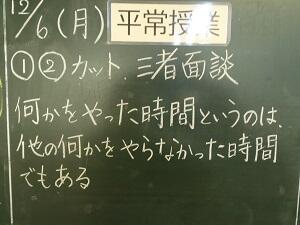 12/6(月) 平常授業
①②カット. 三者面談
何かをやった時間というのは、
他の何かをやらなかった時間
でもある